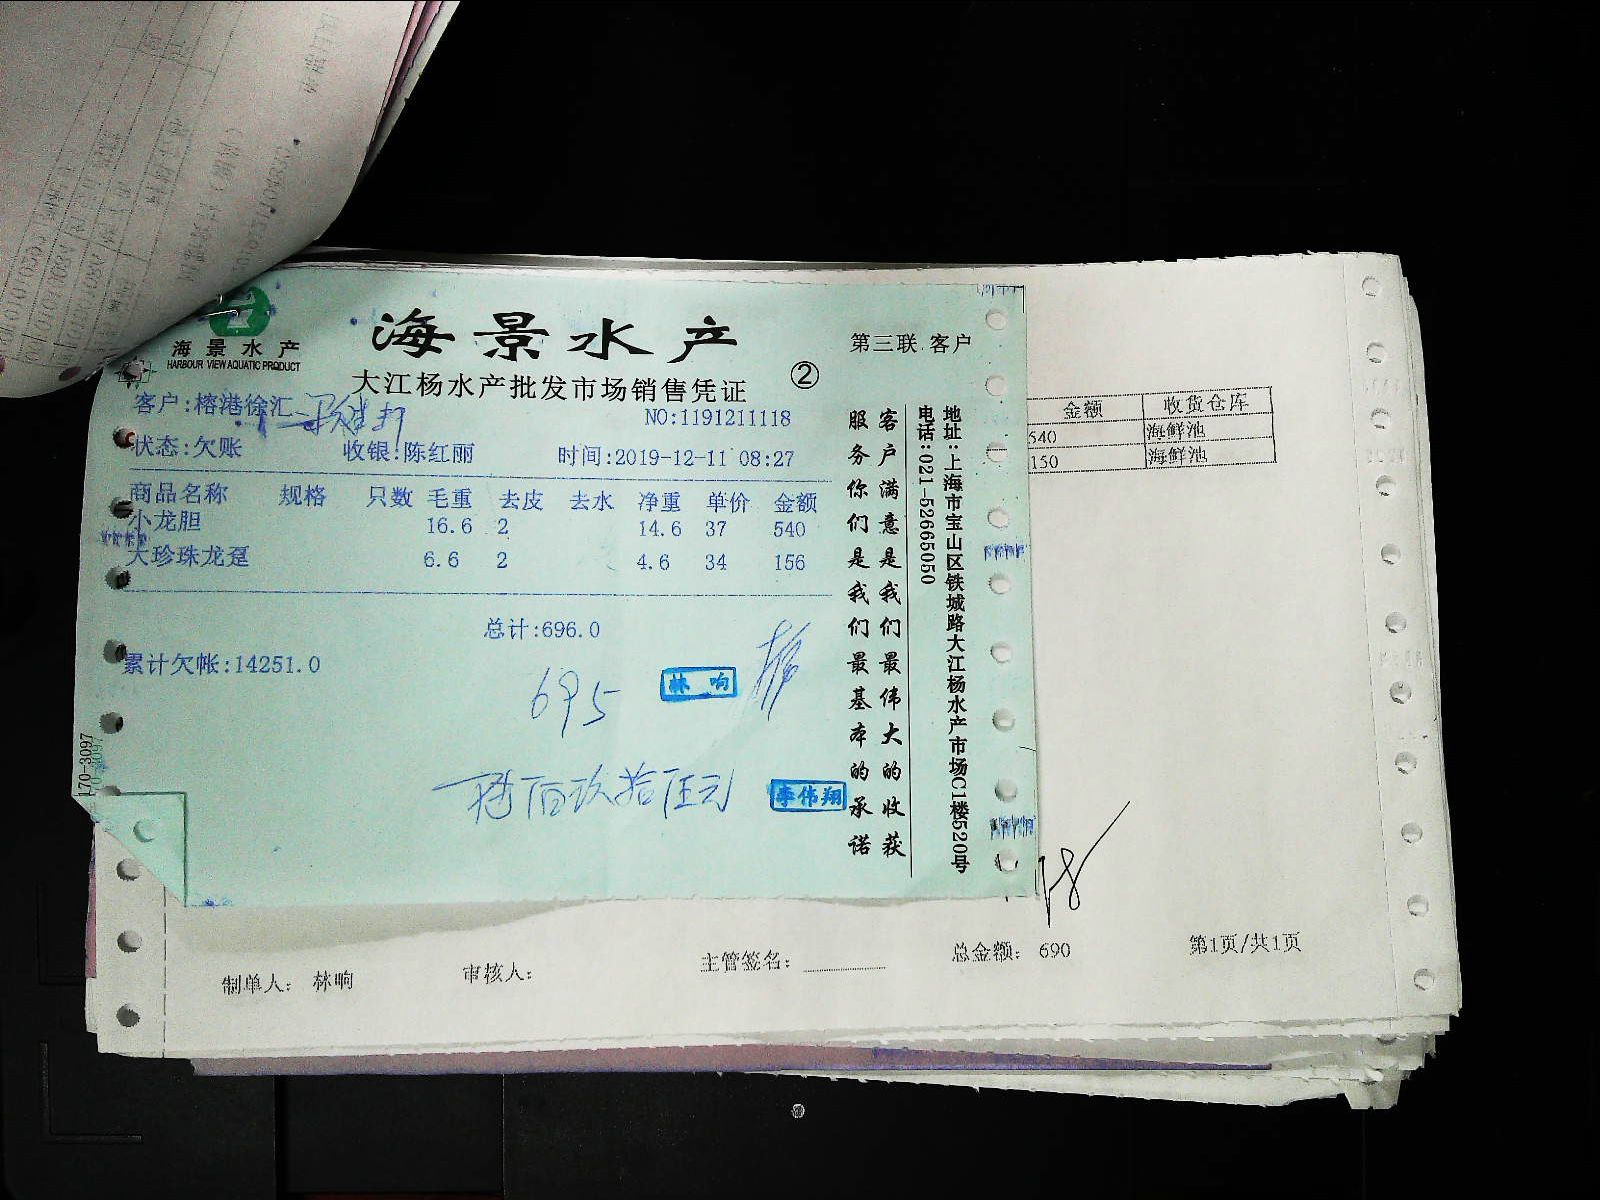 海景水产
HARBOUR VIEW AQUATIC PRODUCT
海景水产
大江杨水产批发市场销售凭证
②
第三联 客户
客户:榕港徐汇
NO:1191211118
状态:欠账 收银:陈红丽 时间:2019-12-11 08:27
商品名称 规格 只数 毛重 去皮 去水 净重 单价 金额
小龙胆 16.6 2 14.6 37 540
大珍珠龙趸 6.6 2 4.6 34 156
总计:696.0
累计欠帐:14251.0
695
林响
陆佰玖拾伍元
李伟翔
客户满意是我们最伟大的收获
服务你们是我们最基本的承诺
地址:上海市宝山区铁城路大江杨水产市场C1楼520号
电话:021-52665050
170-3097
金额 收货仓库
540 海鲜池
150 海鲜池
制单人: 林响 审核人: 主管签名: 总金额: 690 第1页/共1页